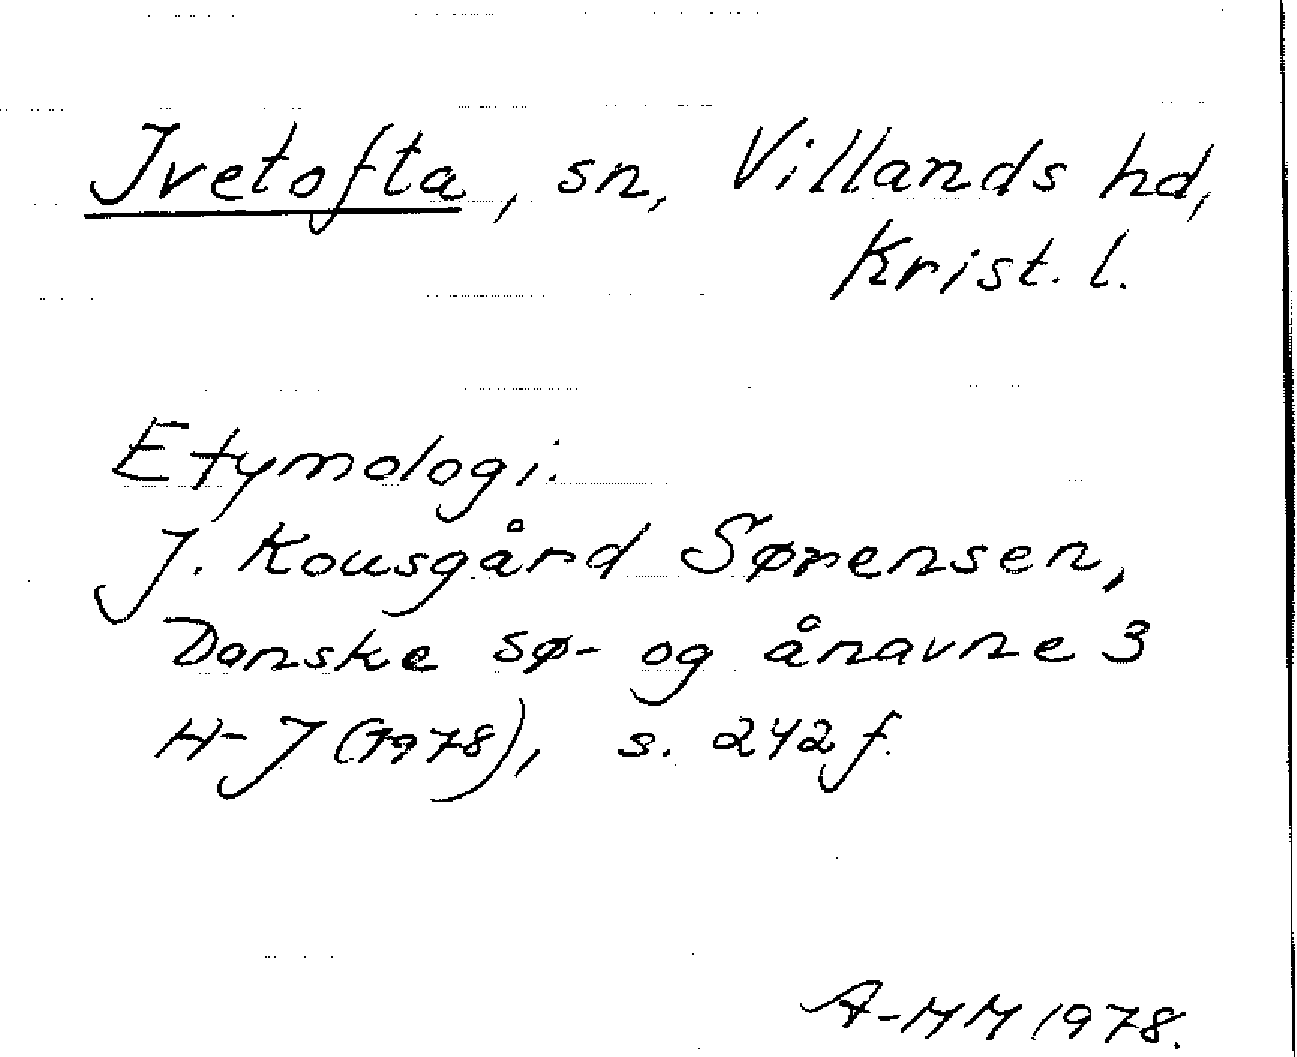 Ivetofta, sn, Villands hd,
Krist. l.
Etymologi.
J. Kousgård Sørensen,
Danske sø- og ånavne 3
H-J (1978), s. 242 f.
A-MM 1978.